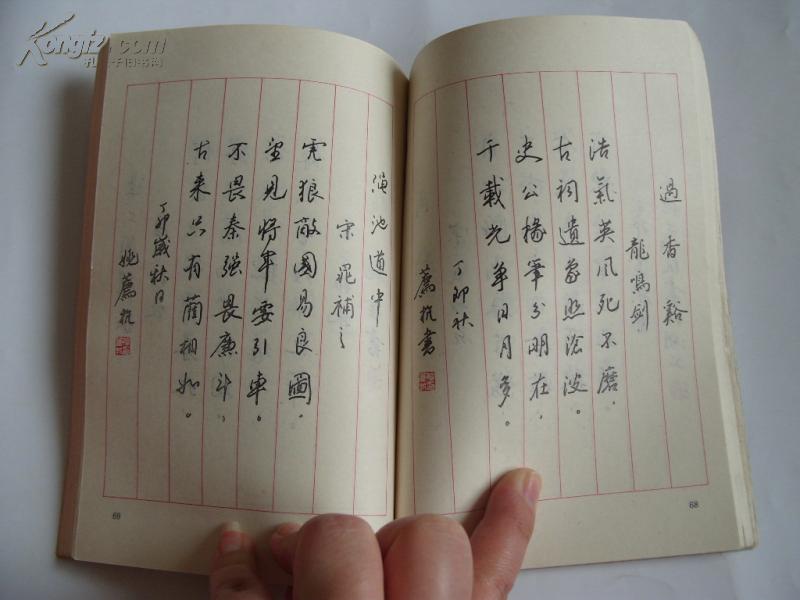 過香谿
龍鳴劍
浩氣英風死不磨.
古祠遺冢照滄波。
史公椽筆分明在,
千載光爭日月多。
丁卯秋
薦書
68
澠池道中
宋 晁補之
虎狼敵國易良圖.
望見將軍要引車。
不畏秦強畏廉斗,
古來只有藺相如。
丁卯歲秋日
姚薦
69
Kongfz.com
孔夫子旧书网